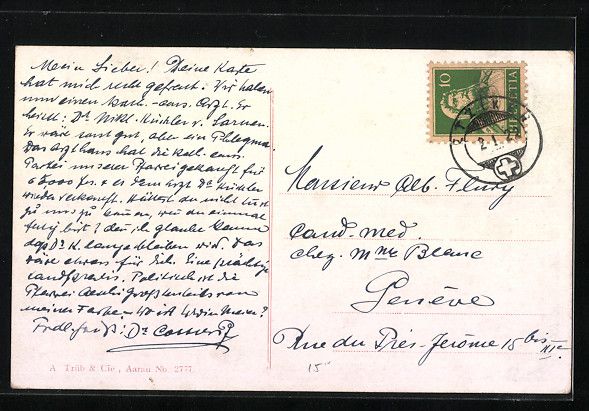 Mein Lieber! Deine Karte
hat mich recht gefreut. Wir haben
nun einen Kath.-cons. Arzt. Er
heisst: Dr. Nikl. Küchler v. Sarnen.
Er wäre sonst gut, aber ein Phlegma.
Das Arzthaus hat die Kath. cons.
Partei unserer Pfarrei gekauft für
& es dem Arzt Dr. Küchler
wieder verkauft. Hättest du nicht Lust
zu uns zu kommen, wenn du einmal
fertig bist? denn ich glaube kaum
dass Dr. K. lange bleiben wird. Das
wäre etwas für dich. Eine
Landpraxis. Politisch ist die
Pfarrei größtenteils von
meiner Farbe. Wo ist
Frdl. Gruß: Dr.
A. Trüb & Cie, Aarau No. 2777.
10
HELVETIA
2. I.
Monsieur Alb. Flury
cand. med.
chez Mme Blanc
Genève
Rue du Prés-Jérôme 15 bis
15